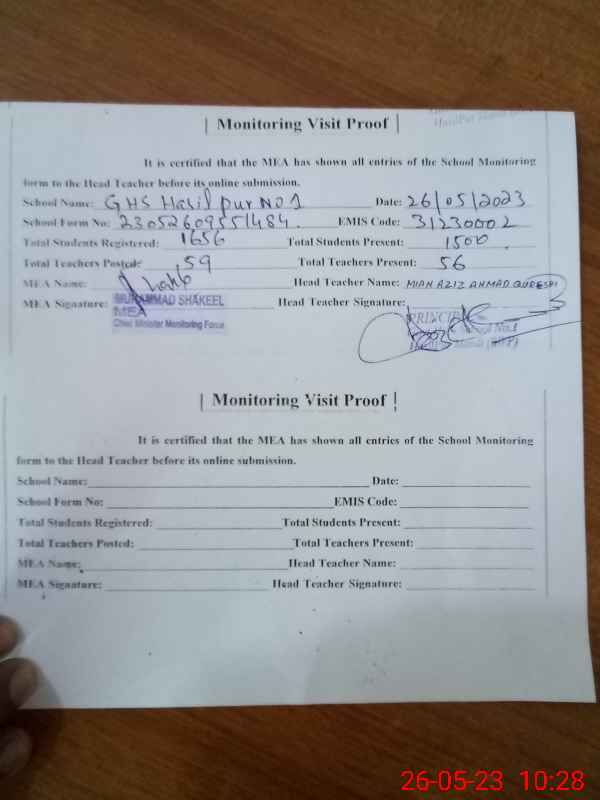 | Monitoring Visit Proof |
It is certified that the MEA has shown all entries of the School Monitoring
form to the Head Teacher before its online submission.
School Name: GHS Hasilpur NO 1 Date: 26/05/2023
School Form No: 23052609551484. EMIS Code: 31230002
Total Students Registered: 1656 Total Students Present: 1500
Total Teachers Posted: 59 Total Teachers Present: 56
MEA Name: Head Teacher Name: MIAN AZIZ AHMAD QURESHI
MEA Signature: MUHAMMAD SHAKEEL Head Teacher Signature:
MEA PRINCIPAL
Chief Minister Monitoring Force
| Monitoring Visit Proof |
It is certified that the MEA has shown all entries of the School Monitoring
form to the Head Teacher before its online submission.
School Name: Date:
School Form No: EMIS Code:
Total Students Registered: Total Students Present:
Total Teachers Posted: Total Teachers Present:
MEA Name: Head Teacher Name:
MEA Signature: Head Teacher Signature:
26-05-23 10:28